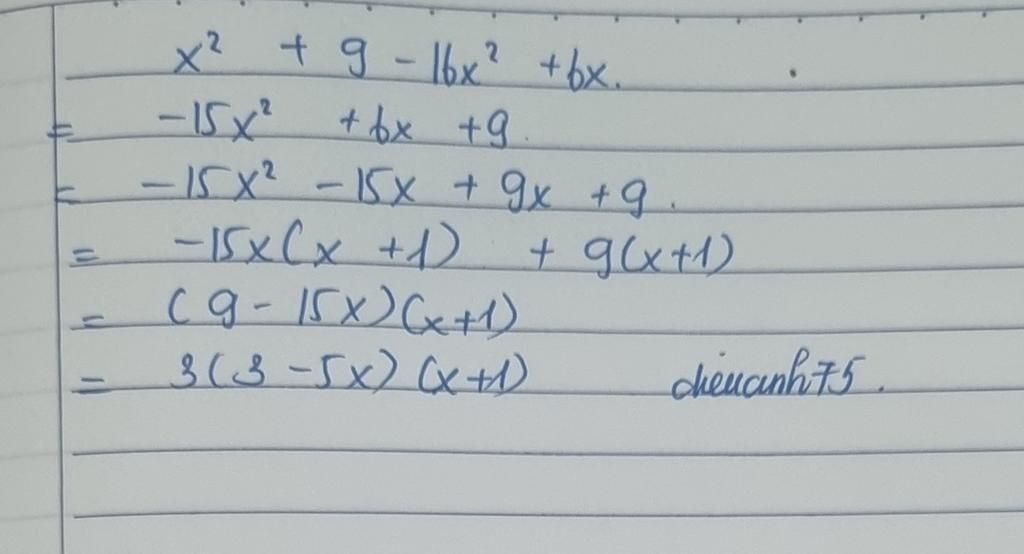 x² + 9 - 16x² + 6x.
= -15x² + 6x + 9.
= -15x² - 15x + 9x + 9.
= -15x(x + 1) + 9(x+1)
= (9 - 15x)(x+1)
= 3(3 - 5x)(x+1) chieuanh75.